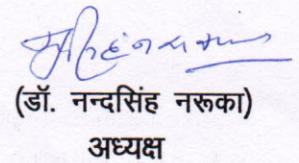 (डॉ. नन्दसिंह नरूका)
अध्यक्ष